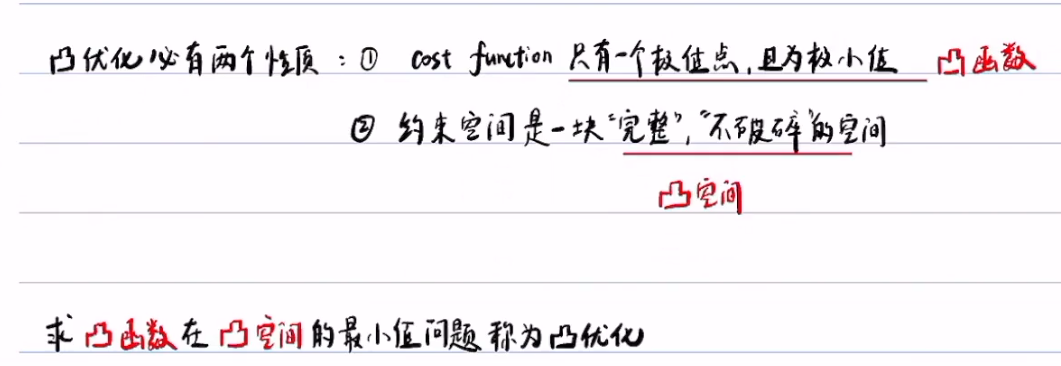 凸优化必有两个性质：① cost function 只有一个极值点，且为极小值 凸函数
② 约束空间是一块“完整”，“不破碎”的空间
凸空间
求凸函数在凸空间的最小值问题称为凸优化